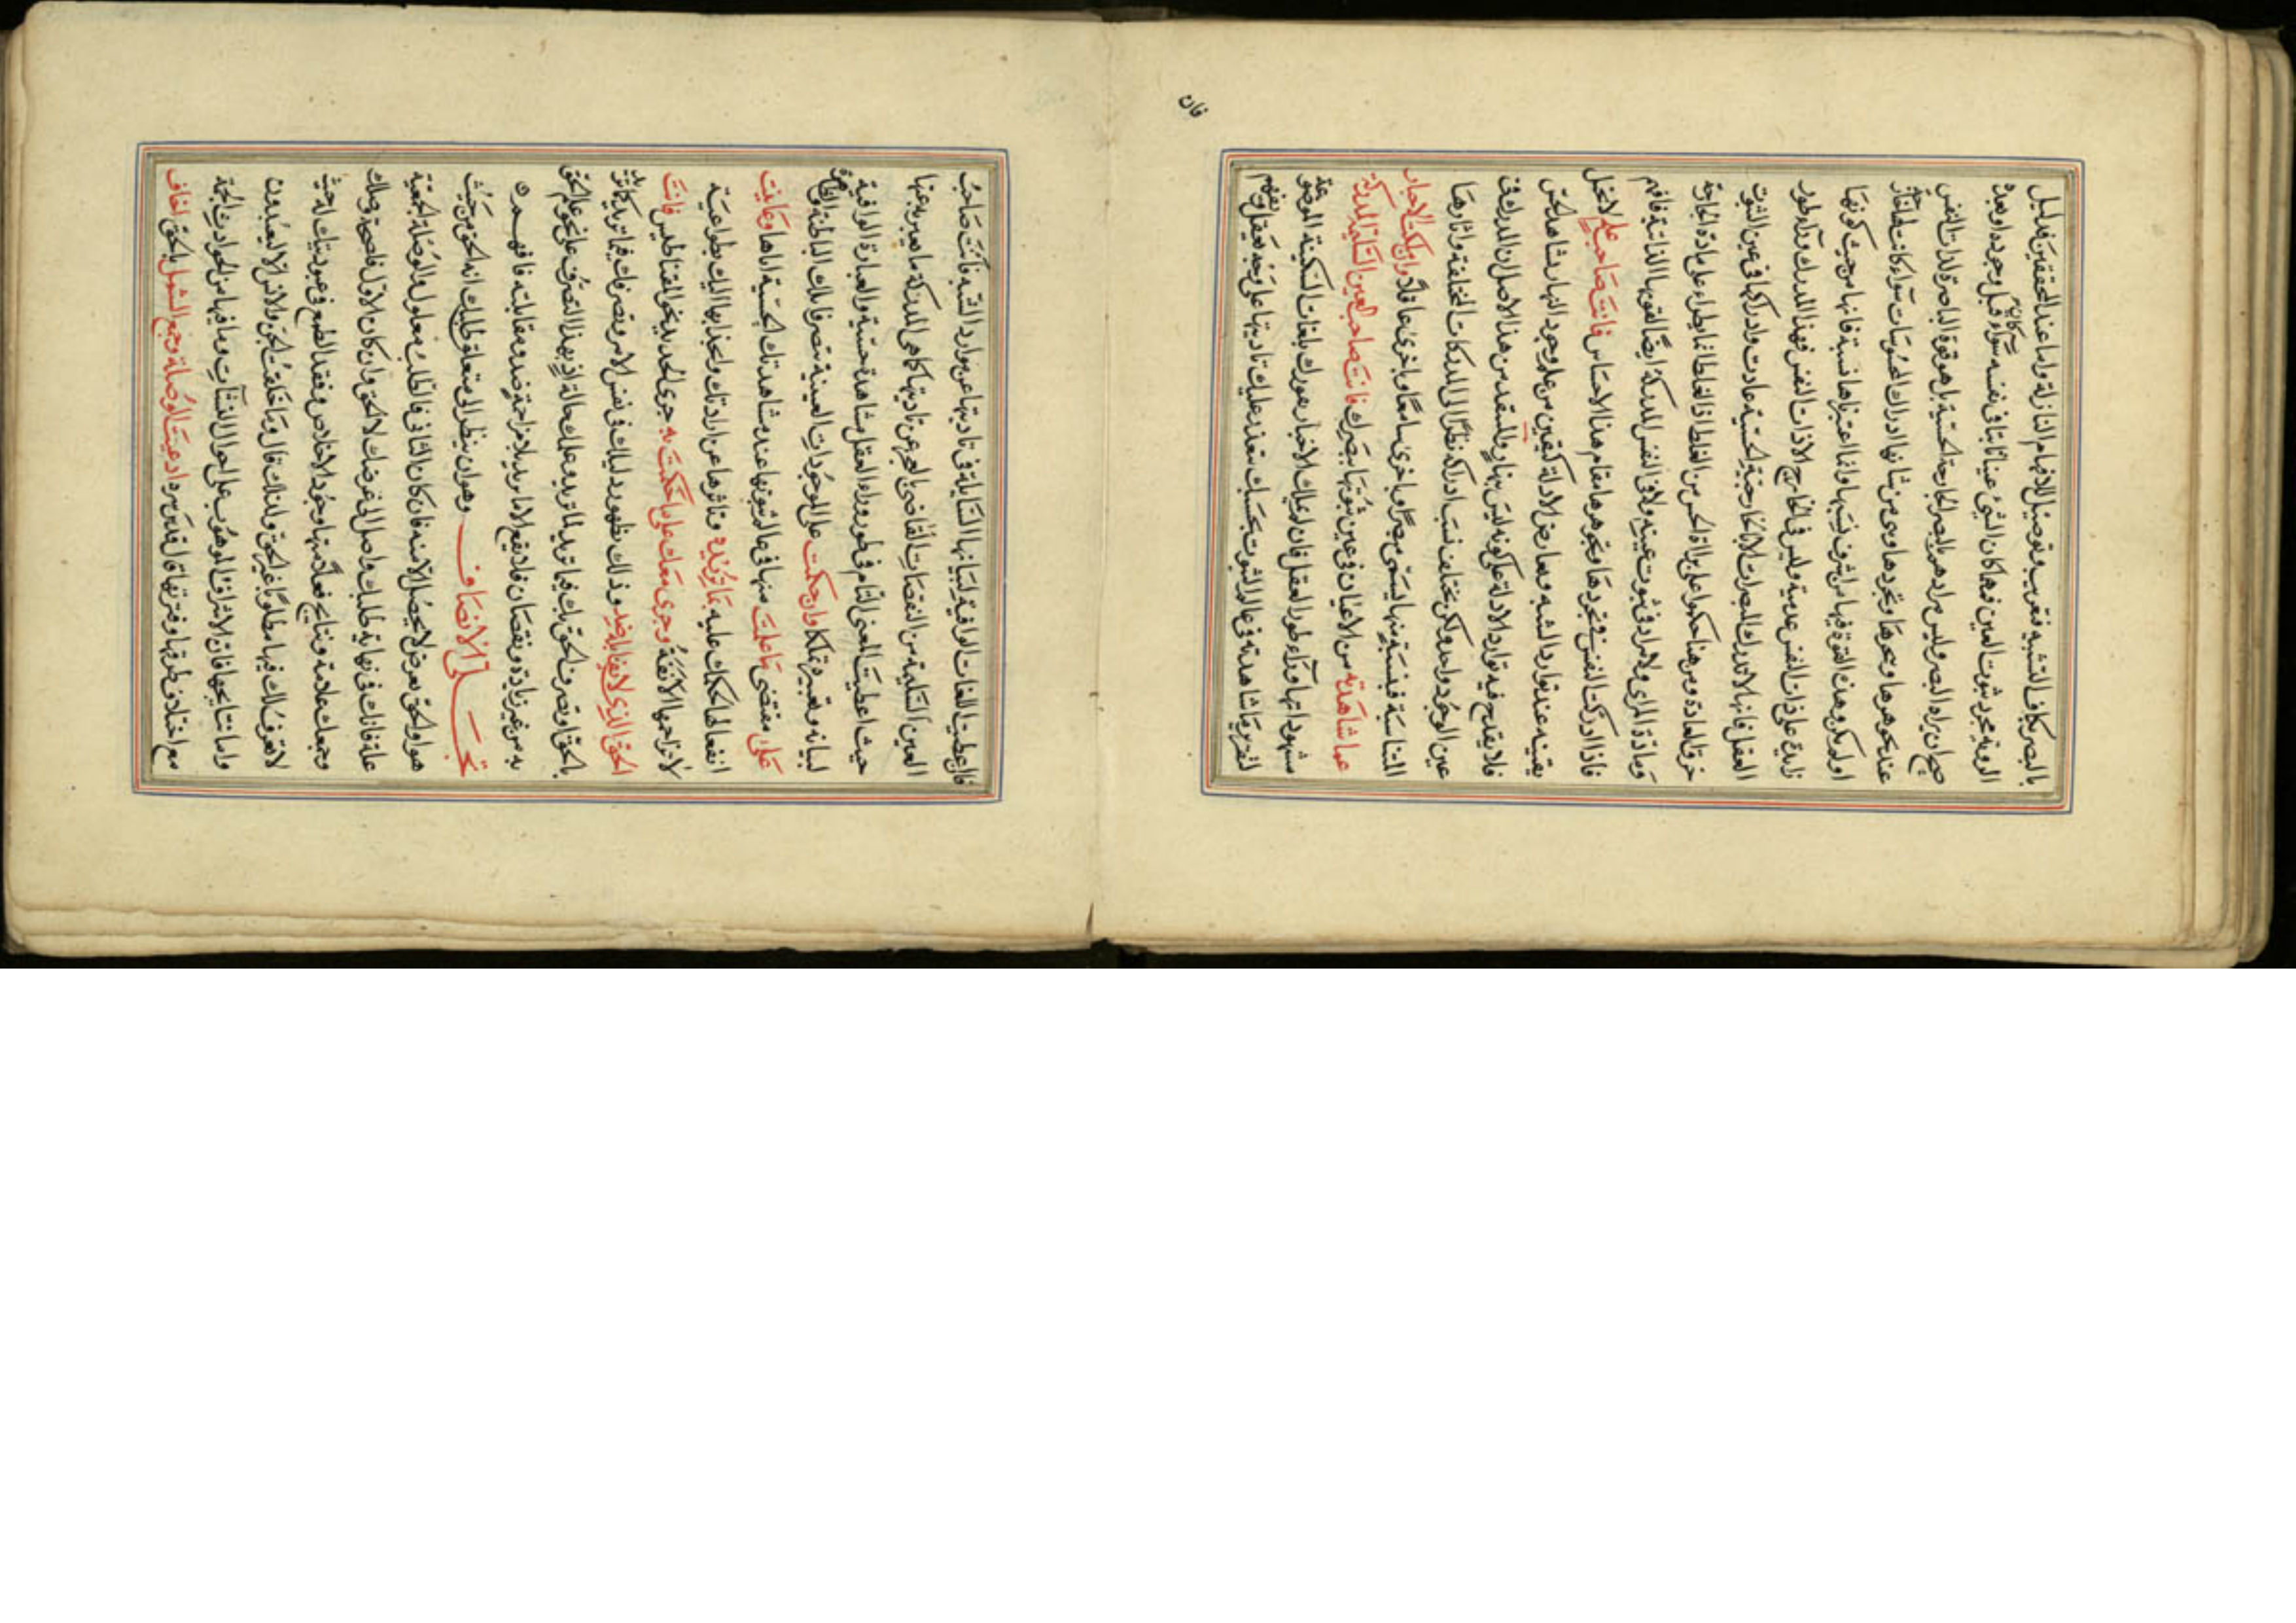 بالبصر كافٍ التشبيه فغريب وتوصيل للافهام النازلة واما عند المحققين فدليل
الروية مجرد ثبوت العين فمهما كان الشئ عينا ثابتا فى نفسه سواء قبل وجوده او بعده
صح ان يراه البصر وليس مراد هم بالبصر الجارحة الحسية بل هو قوة الباصرة لذات النفس
عند تجوهرها وتجردها وهى من شانها ادراك المحسوسات سواء كانت لها جارحة
اولم تكن وهذه القوة فيها من اشرف نسبها وانما اعتبرناها نسبة فانها من حيث كونها
زايدة على ذات النفس عدمية وليس فى الخارج الا ذات النفس فهذا المدرك وراء طور
العقل فانها لا تدرك المبصرات الا بجارحة حسية عادت وادراكها فى عين الثبوت
خرق العادة ومن هنا حكموا على براة الحس من الغلط اذ الغلط انما يطراء على مادة الجارحة
ومادة المراى ولا مراد فى ثبوت عينه ولا فى النفس المدركة ايضا لقوتها الذاتية فافهم
فاذا ادركت النفس فى تجردها وتجوهرها مقام هذا الاحساس فانت صاحب علم لا تخل
يقينه عند توارد الشبه وتعارض الادلة كيقين من علم وجود النهار بمشاهد الشمس
فلا يقدح فيه توارد الادلة على كونه ليس بنهار والمستفد من هذا الاصل ان المدرك فى
عين الوجود واحد ولكن يختلف نسب ادراكه نظرا الى المدركات المختلفة واثارها
المتناسبة فبنسبة منها يسمى بصرا وباخرى سامعا وباخرى عاقلا وان كنت الاخبار
عما شاهدته من الاعيان فى عين ثبوتها ببصرك فانت صاحب العين السليمة المدركة
مشهود اتها وراء طور العقل فان لم عليك الاخبار بعبورك بلغات السكينة الموضوعة
لتقرير ما شاهدته فى عالم الثبوت بحسبك متعذر عليك تاديتها على وجه تعقل وتفهم
فان
فان اعطيت اللغات الوافية لبيانها السايلة فى تاديتها عن موارد الشبه فانت صاحب
العين السليمة من النقصات القاضى بالعجز عن تاديتها كما هى المدركة ما يعبر به عنها
حيث اعطيت العين التام فى طور وراء العقل مشاهدة حسية والعبارة الوافية
لبيانه وتعبيره تملكا وان حكمت على الموجودات العينية بتصرفاتك الباطنة والظاهرة
على مقتضى ما علمت منها فى عالم ثبوتها عند مشاهدتك الحسية اياها وعاينت
انفعالها لحكمك عليه بما تريده وتاثرها عن ارادتك وانجذابها اليك بطواعية
لا تزاحمها الانفة وجرى معك على ما حكمت به جرى الحديد نحو المقناطيس فانت
الحق الذى لا يقابله ضد وذلك بظهور دليلك فى نفس الامر وبتصرفك فيما تريد كاثر
بالحق او تصرف الحق بك فيما تريد لما تريد وعلمك حالة اذ بهذا التصرف على نحو الحق
به من غير زيادة ونقصان فلا يقع الا ما تريد بلا مزاحمة ضد ومقابلته فافهم
تجلى الانصاف وهو ان ينظر الى متعلق طلبك انه الحق من حيث
هو او الحق بعوض لا يحصل الا منه فان كان الثانى فالطلب معلول والوصلة الجمعية
علة فانك فى نهاية طلبك واصل الى غرضك لا الحق وان كان الاول فاصحة وصلك
وجمعك علامة ونتايج فعلامتها وجود الاخلاص وفقد الطمع فى عبوديتك له حيث
لا تعرف لك فيها مطلوبا غير الحق ولذلك قال وما خلقت الجن والانس الا ليعبدون
واما نتايجها فان الاشراف الموهوب على احوال النشآت وما فيها من الحوادث الجمة
مع اختلاف طرقها وقربها قال قدس سره ادعيت الوصلة وجمع الشمل بالحق اخاف